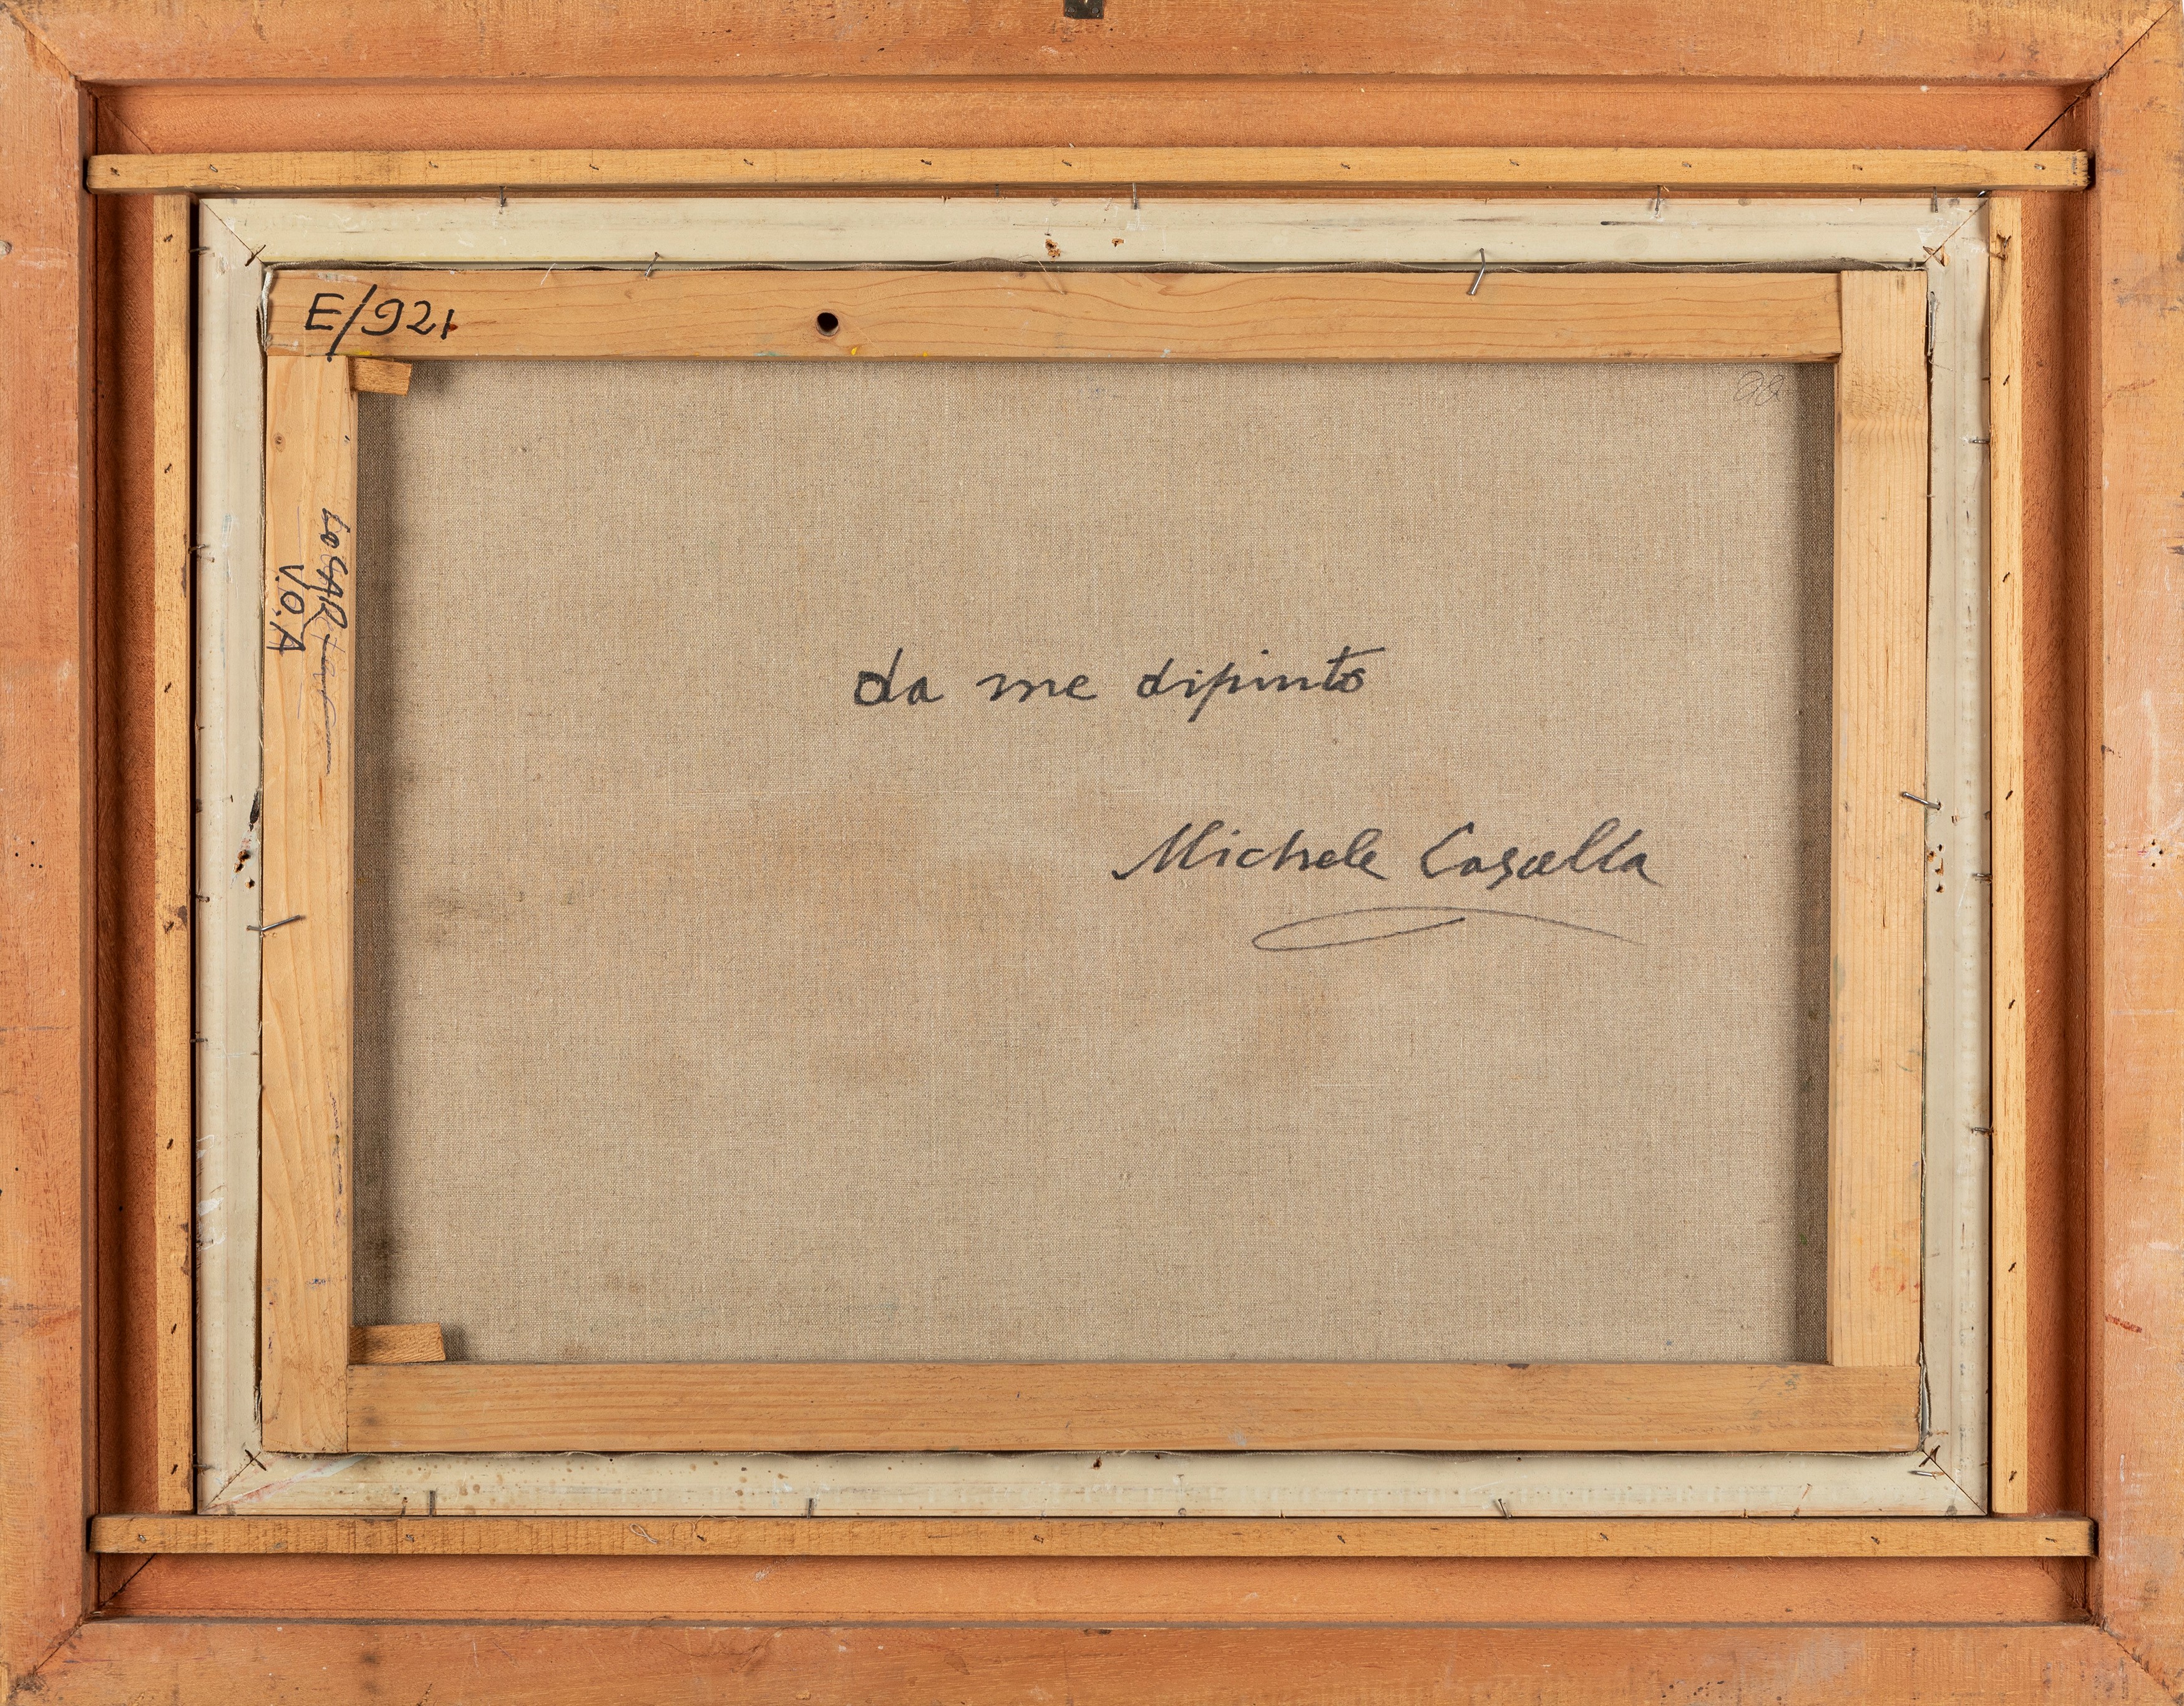 E/921
V.O.A
da me dipinto
Michele Casella